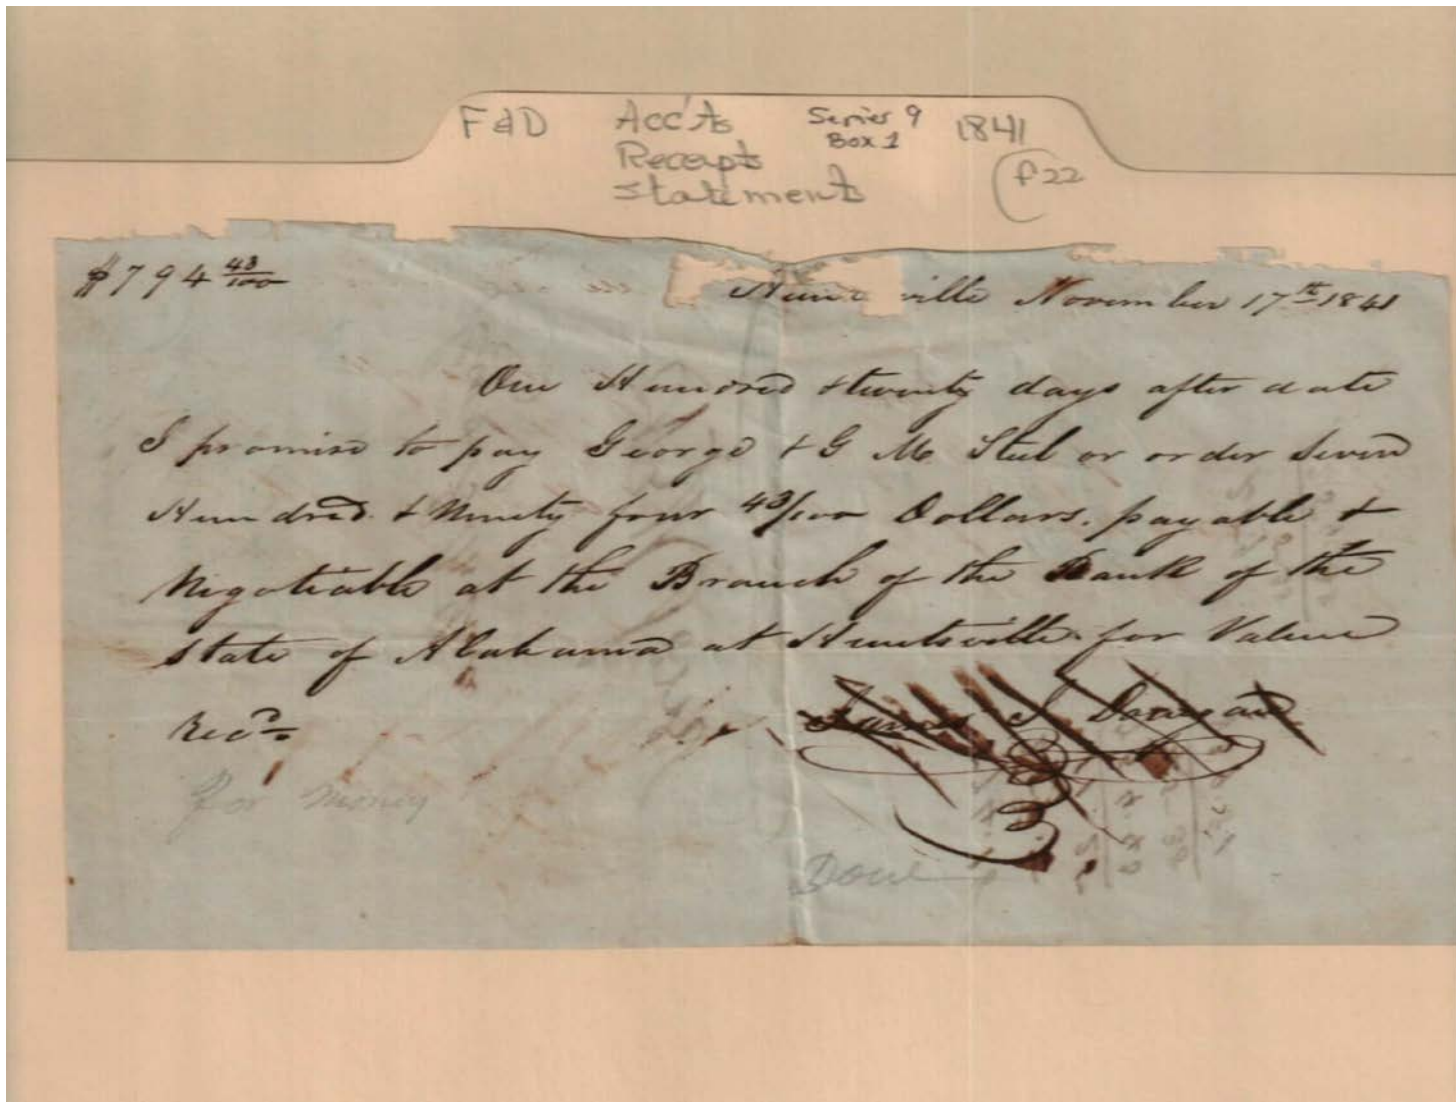 F&D Acc'ts Series 9 1841
Box 1
Receipts f22
Statements
$794 43/100
Huntsville November 17th 1841
One Hundred & twenty days after date
I promise to pay George & G M Steel or order Seven
Hundred & Ninety four 43/100 Dollars. payable &
Negotiable at the Branch of the Bank of the
State of Alabama at Huntsville for Value
Recd
James J Donegan
for money
Done